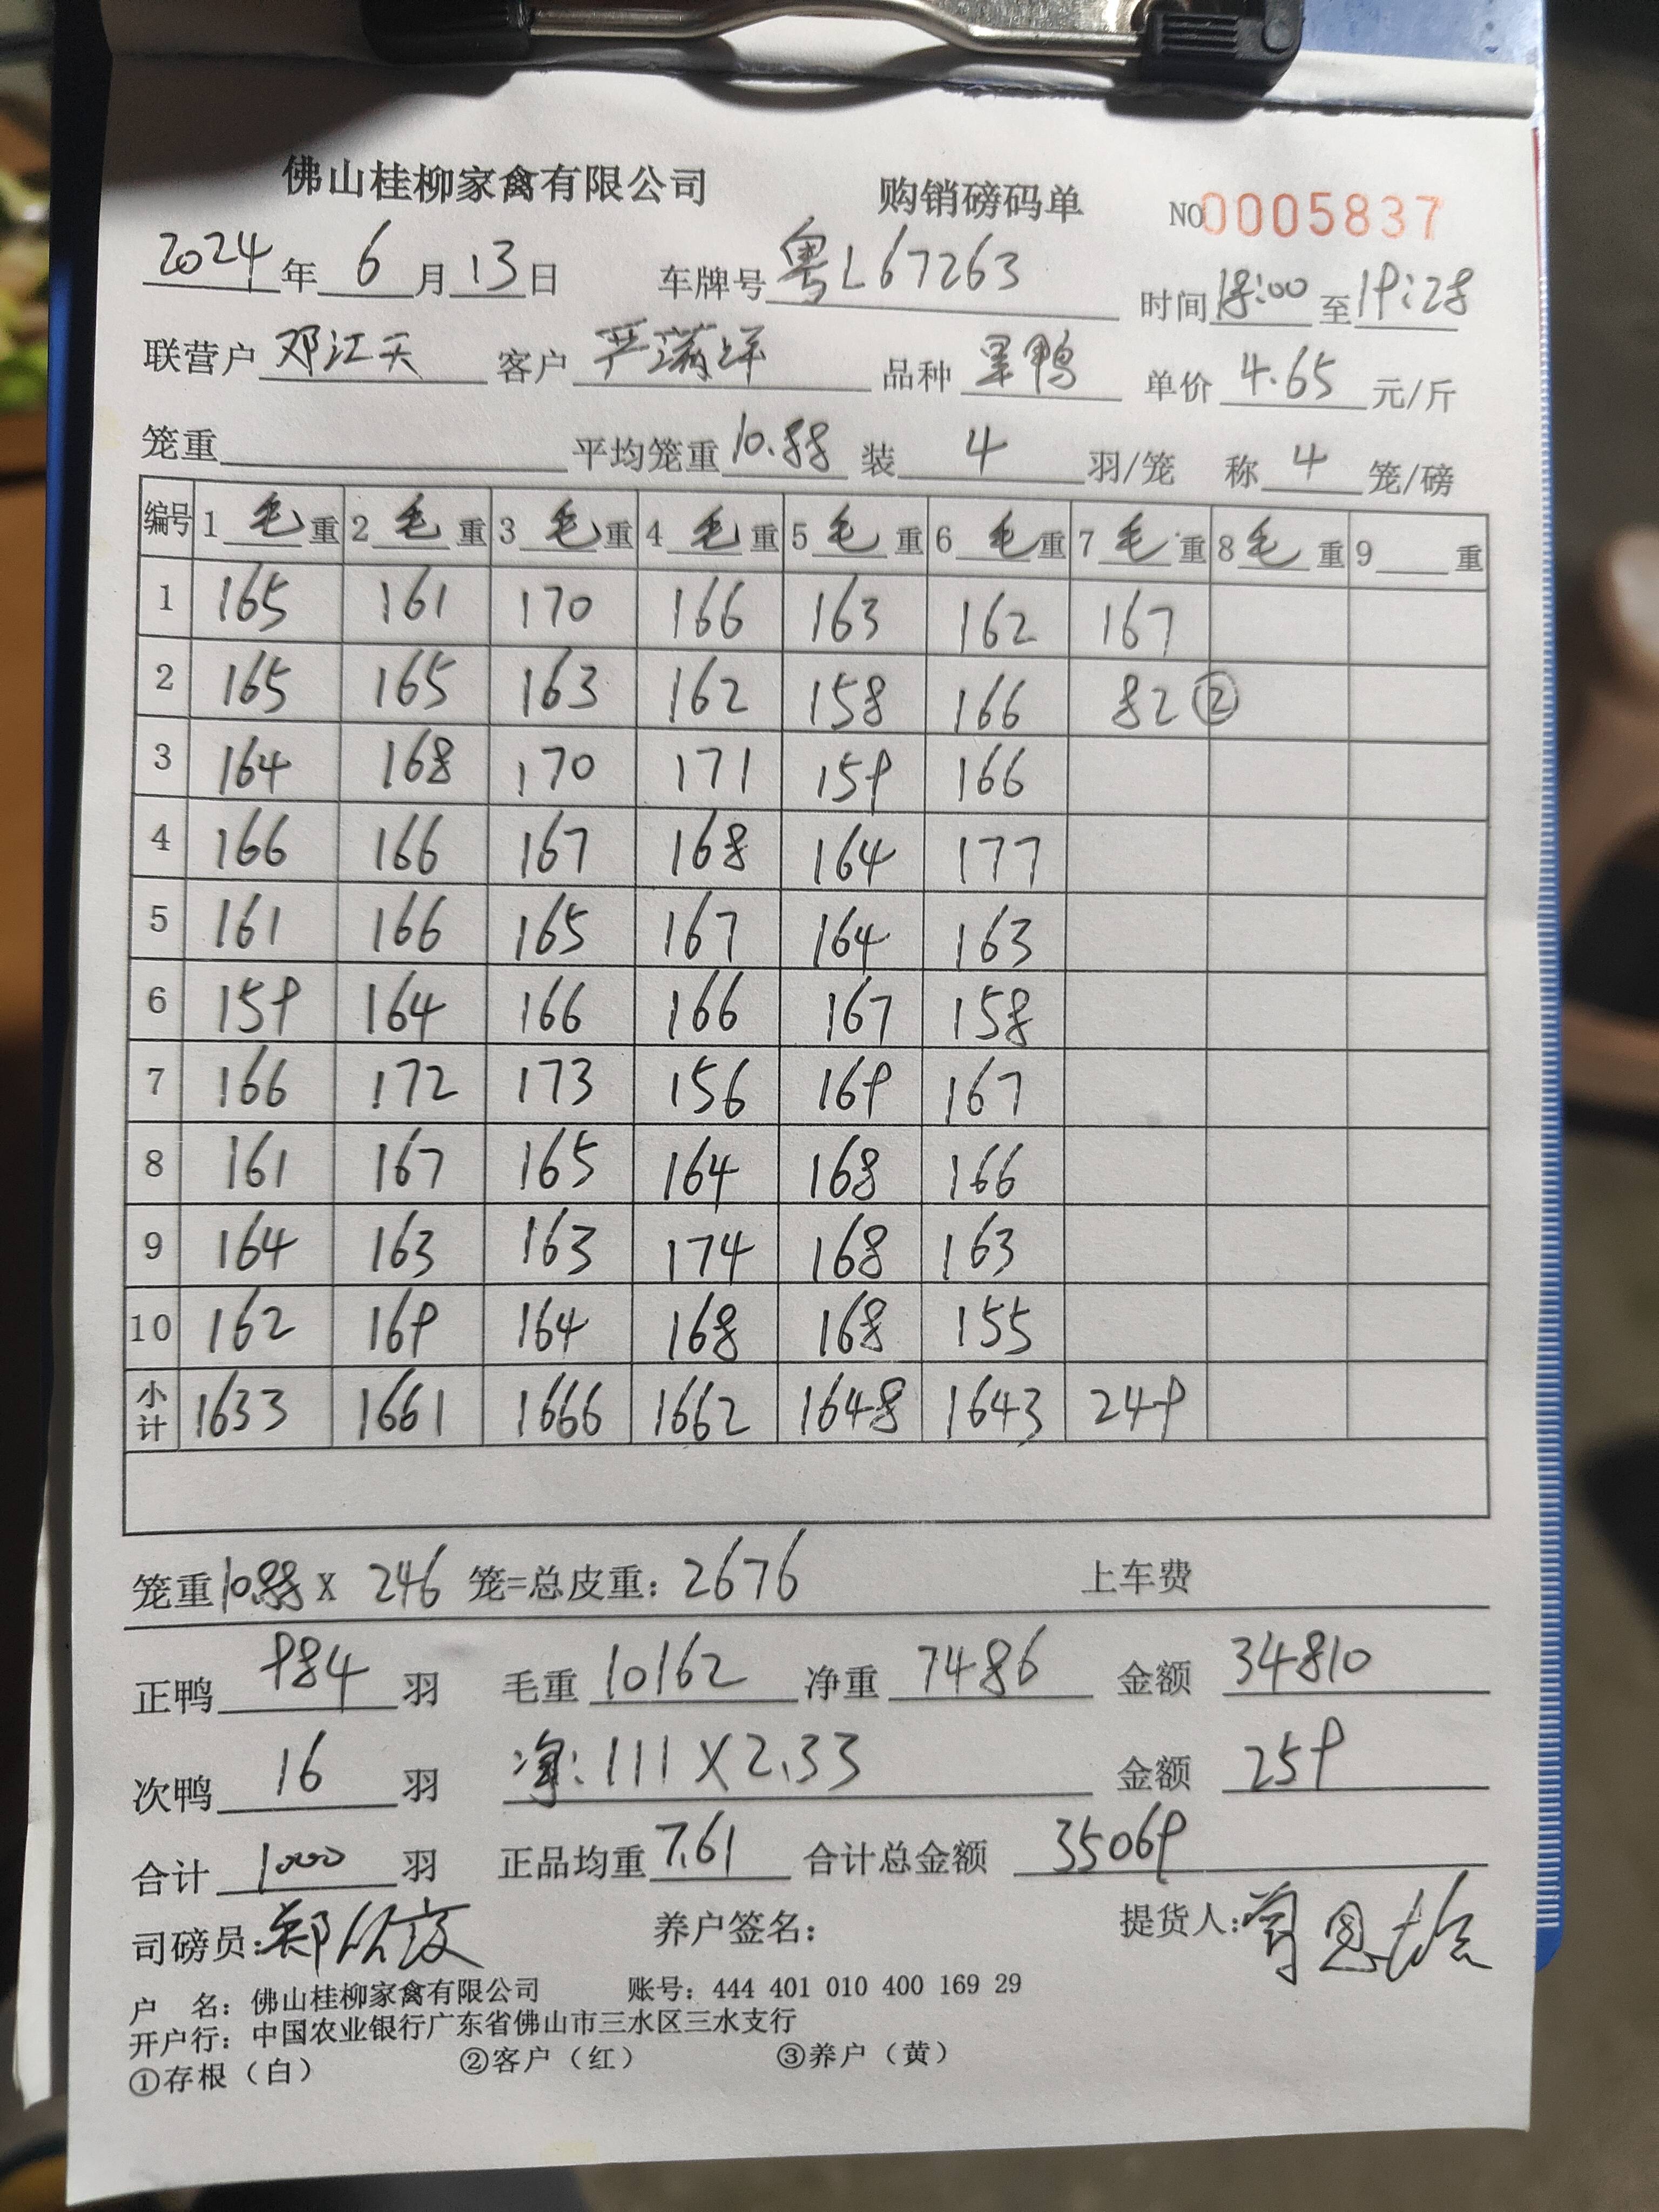 佛山桂柳家禽有限公司 购销磅码单 NO0005837
2024年6月13日 车牌号粤L67263 时间18:00至19:28
联营户邓江天 客户严满洋 品种 单价4.65元/斤
笼重 平均笼重10.88装4羽/笼 称4笼/磅
编号 1毛重 2毛重 3毛重 4毛重 5毛重 6毛重 7毛重 8毛重 9重
1 165 161 170 166 163 162 167
2 165 165 163 162 158 166 82②
3 164 168 170 171 159 166
4 166 166 167 168 164 177
5 161 166 165 167 164 163
6 159 164 166 166 167 158
7 166 172 173 156 169 167
8 161 167 165 164 168 166
9 164 163 163 174 168 163
10 162 169 164 168 168 155
小计 1633 1661 1666 1662 1648 1643 249
笼重10.88X 246笼=总皮重:2676 上车费
正鸭984羽 毛重10162净重7486 金额34810
次鸭16羽 净:111X2.33 金额259
合计1000羽 正品均重7.61合计总金额35069
司磅员: 养户签名: 提货人:
户 名:佛山桂柳家禽有限公司 账号:444 401 010 400 169 29
开户行:中国农业银行广东省佛山市三水区三水支行
①存根(白) ②客户(红) ③养户(黄)